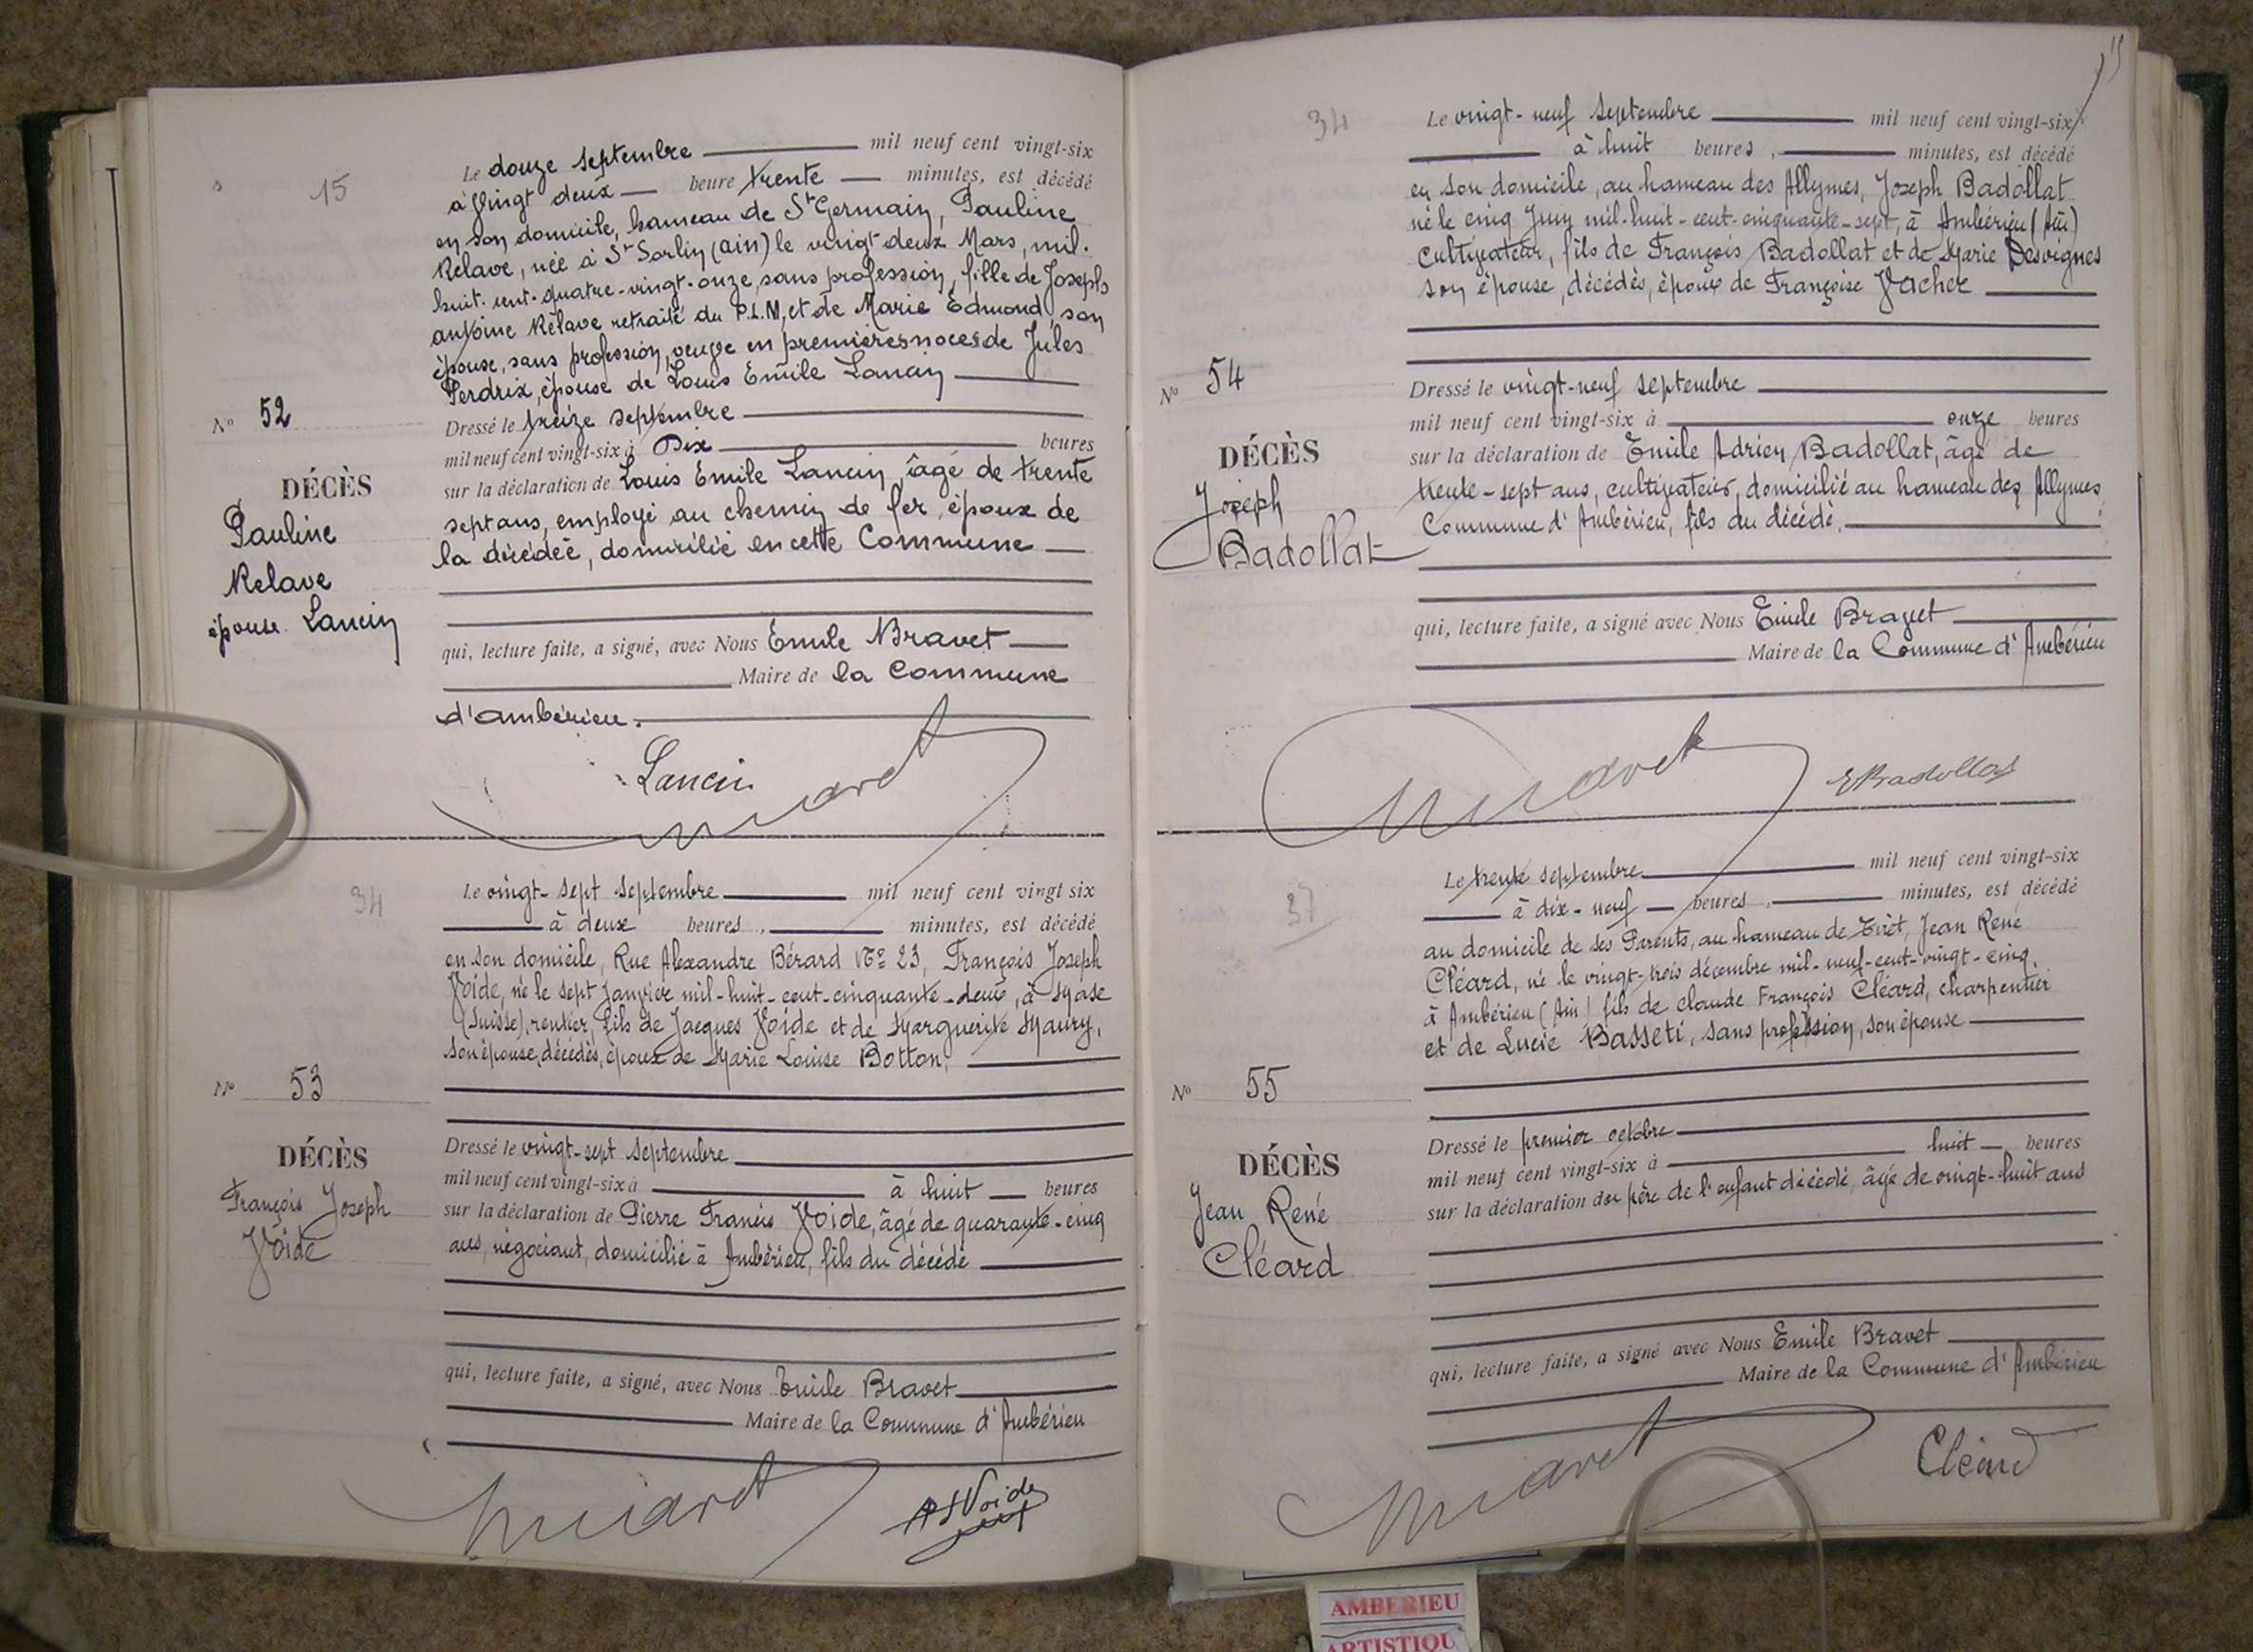 15
Le douze septembre mil neuf cent vingt-six
à vingt deux heure trente minutes, est décédé
en son domicile, hameau de St Germain, Pauline
Relave, née à St Sorlin (ain) le vingt-deux Mars, mil-
huit-cent-quatre-vingt-onze, sans profession, fille de Joseph
antoine Relave retraité du P.L.M, et de Marie Edmond, son
épouse, sans profession, veuve en premières noces de Jules
Perdrix, épouse de Louis Emile Lancin
Nº 52
Dressé le treize septembre
mil neuf cent vingt-six à Dix heures
DÉCÈS
Pauline
Relave
épouse Lancin
sur la déclaration de Louis Emile Lancin, âgé de trente
sept ans, employé au chemin de fer, époux de
la décédée, domicilié en cette Commune
qui, lecture faite, a signé, avec Nous Emile Bravet
Maire de la Commune
d'ambérieu.
Lancin
Bravet
34
Le vingt-sept septembre mil neuf cent vingt six
à deux heures, minutes, est décédé
en son domicile, Rue Alexandre Bérard Nº 23, François Joseph
Voide, né le sept Janvier mil-huit-cent-cinquante-deux, à Mase
(Suisse), rentier, fils de Jacques Voide et de Marguerite Maury,
son épouse, décédés, époux de Marie Louise Botton,
Nº 53
DÉCÈS
François Joseph
Voide
Dressé le vingt-sept septembre
mil neuf cent vingt-six à à huit heures
sur la déclaration de Pierre Francis Voide, âgé de quarante-cinq
ans, négociant, domicilié à Ambérieu, fils du décédé
qui, lecture faite, a signé, avec Nous Emile Bravet
Maire de la Commune d'Ambérieu
Bravet
Voide
34
Le vingt-neuf septembre mil neuf cent vingt-six
à huit heures, minutes, est décédé
en son domicile, au hameau des Allymes, Joseph Badollat
né le cinq Juin mil-huit-cent-cinquante-sept, à Ambérieu (Ain)
Cultivateur, fils de François Badollat et de Marie Desvignes
son épouse, décédés, époux de Françoise Vacher
Nº 54
DÉCÈS
Joseph
Badollat
Dressé le vingt-neuf septembre
mil neuf cent vingt-six à onze heures
sur la déclaration de Emile Adrien Badollat, âgé de
trente-sept ans, cultivateur, domicilié au hameau des Allymes
Commune d'Ambérieu, fils du décédé,
qui, lecture faite, a signé avec Nous Emile Bravet
Maire de la Commune d'Ambérieu
Bravet
EBadollat
37
Le trente septembre mil neuf cent vingt-six
à dix-neuf heures, minutes, est décédé
au domicile de ses Parents, au hameau de Tiret, Jean René
Cléard, né le vingt-trois décembre mil-neuf-cent-vingt-cinq,
à Ambérieu (Ain) fils de Claude François Cléard, charpentier
et de Lucie Basseti, sans profession, son épouse
Nº 55
DÉCÈS
Jean René
Cléard
Dressé le premier octobre
mil neuf cent vingt-six à huit heures
sur la déclaration du père de l'enfant décédé, âgé de vingt-huit ans
qui, lecture faite, a signé avec Nous Emile Bravet
Maire de la Commune d'Ambérieu
Bravet
Cléard
AMBERIEU
ARTISTIQU